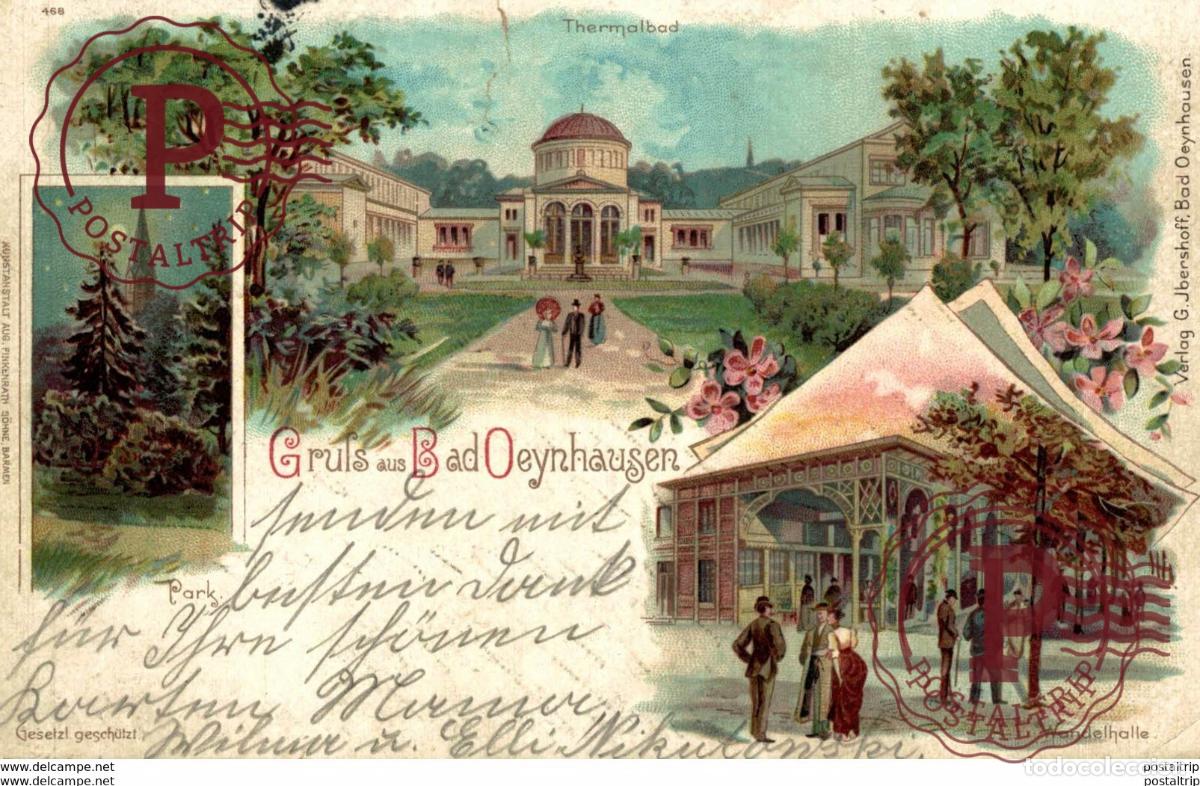 468
Thermalbad
POSTALTRIP
KUNSTANSTALT AUG. FINKENRATH SÖHNE, BARMEN
Verlag G. Ibershoff, Bad Oeynhausen.
Gruſs aus Bad Oeynhausen
senden mit
besten Dank
für Ihre schönen
Karten Mama
Wilma u. Elli Nikulowski.
Park.
Gesetzl. geschützt.
POSTALTRIP
Wandelhalle.
www.delcampe.net
www.delcampe.net
todocoleccion
postaltrip
postaltrip